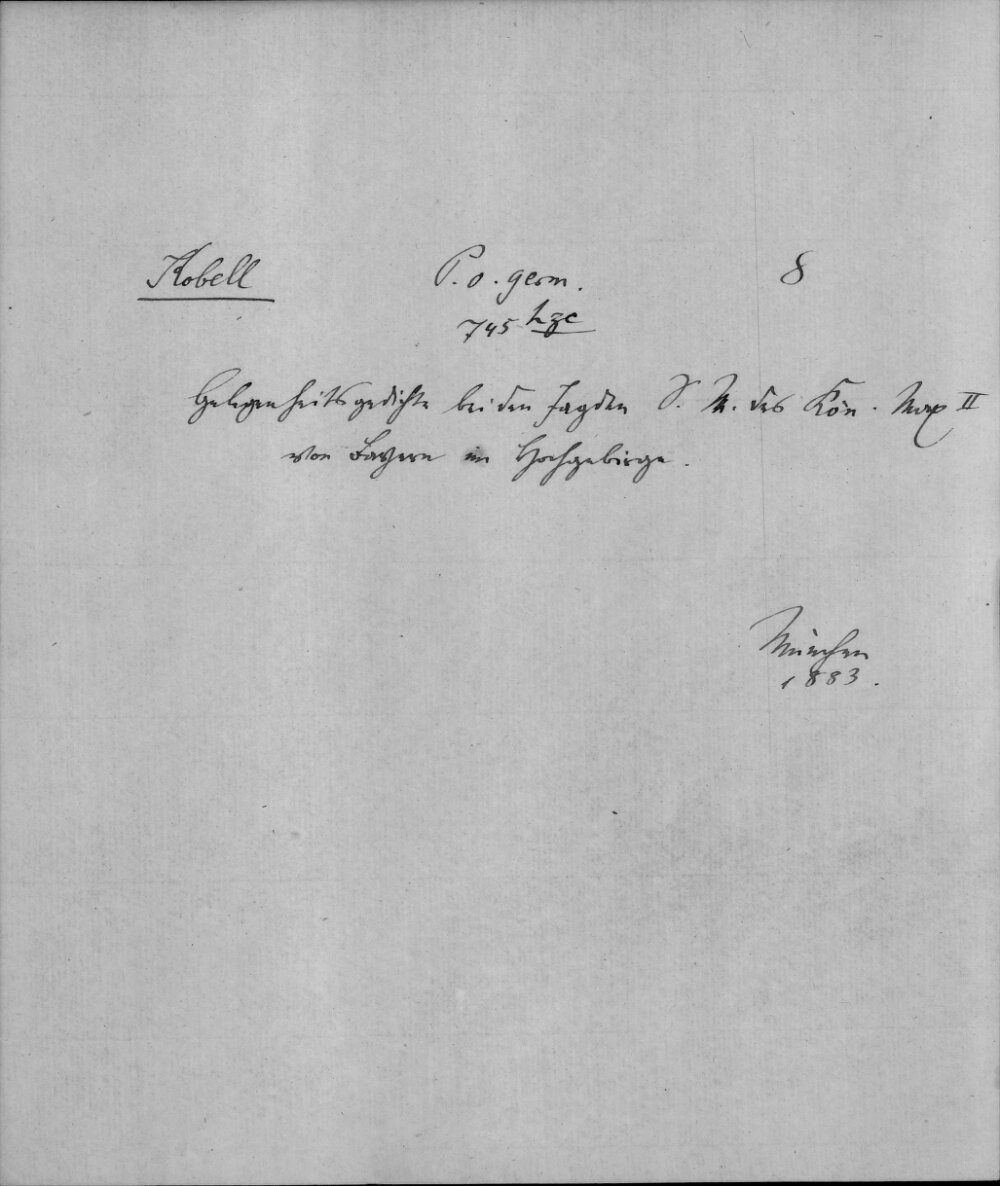 Kobell P. o. germ. 8
745 hzc
Gelegenheitsgedichte bei den Jagden S. M. des Kön. Max II
von Bayern im Hochgebirge.
München
1883.